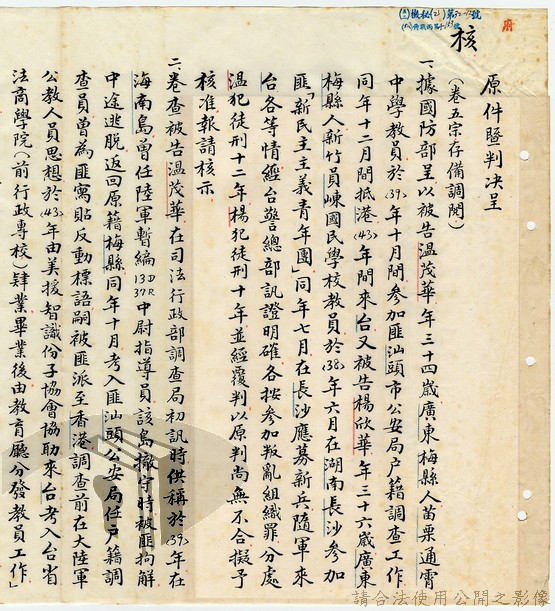 核
原件暨判決呈
(卷五宗存備調閱)
一、據國防部呈以被告溫茂華年三十四歲廣東梅縣人苗栗通霄
中學教員於(39)年十月間參加匪汕頭市公安局戶籍調查工作
同年十二月間抵港(43)年間來台又被告楊欣華年三十六歲廣東
梅縣人新竹員崠國民學校教員於(38)年六月在湖南長沙參加
匪「新民主主義青年團」同年七月在長沙應募新兵隨軍來
台各等情經台警總部訊證明確各按參加叛亂組織罪分處
溫犯徒刑十二年楊犯徒刑十年並經覆判以原判尚無不合擬予
核准報請核示
二、卷查被告溫茂華在司法行政部調查局初訊時供稱於(39)年在
海南島曾任陸軍暫編13D37R中尉指導員該島撤守時被匪拘解
中途逃脫返回原籍梅縣同年十月考入匪汕頭公安局任戶籍調
查員曾為匪寫貼反動標語嗣被匪派至香港調查前在大陸軍
公教人員思想於(43)年由美援智識份子協會協助來台考入台省
法商學院(前行政專校)肄業畢業後由教育廳分發教員工作」
請合法使用公開之影像